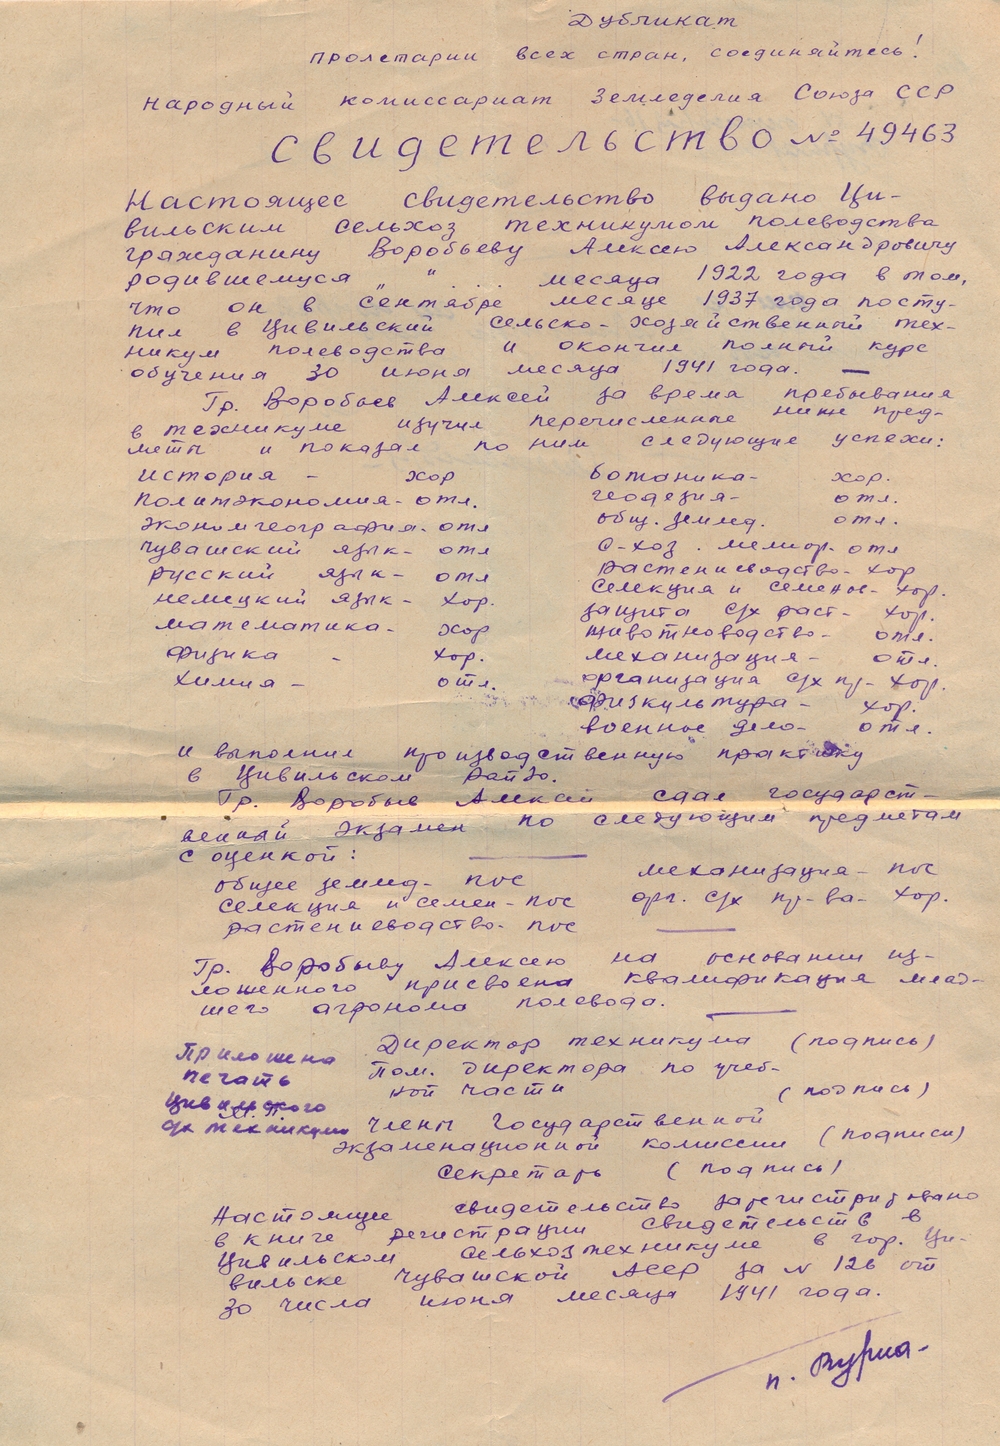 Дубликат
Пролетарии всех стран, соединяйтесь!
Народный комиссариат Земледелия Союза ССР
Свидетельство № 49463
Настоящее свидетельство выдано Ци-
вильским сельхоз техникумом полеводства
гражданину Воробьеву Алексею Александровичу
родившемуся " " ... месяца 1922 года в том,
что он в сентябре месяце 1937 года посту-
пил в Цивильский сельско-хозяйственный тех-
никум полеводства и окончил полный курс
обучения 30 июня месяца 1941 года. —
Гр. Воробьев Алексей за время пребывания
в техникуме изучил перечисленные ниже пред-
меты и показал по ним следующие успехи:
История - хор
Политэкономия - отл.
Экономгеография - отл
Чувашский язык - отл
Русский язык - отл
Немецкий язык - хор.
Математика - хор
Физика - хор.
Химия - отл.
Ботаника - хор.
Геодезия - отл.
Общ. землед. отл.
С-хоз. мелиор. отл
Растениеводство - хор
Селекция и семенов - хор.
Защита с/х раст - хор.
Животноводство - отл.
Механизация - отл.
Организация с/х пр - хор.
Физкультура - хор.
Военное дело - отл.
и выполнил производственную практику
в Цивильском райзо.
Гр. Воробьев Алексей сдал государст-
венный экзамен по следующим предметам
с оценкой: —
общее землед - пос
селекция и семен - пос
растениеводство - пос
механизация - пос
орг. с/х пр-ва - хор.
Гр. Воробьеву Алексею на основании из-
ложенного присвоена квалификация млад-
шего агронома полевода. —
Директор техникума (подпись)
Пом. директора по учеб-
ной части (подпись)
Члены Государственной
экзаменационной комиссии (подписи)
Секретарь (подпись)
Приложена
печать
Цивильского
М. П.
с/х техникума
Настоящее свидетельство зарегистрировано
в книге регистрации свидетельств в
Цивильском сельхозтехникуме в гор. Ци-
вильске Чувашской АССР за № 126 от
30 числа июня месяца 1941 года.